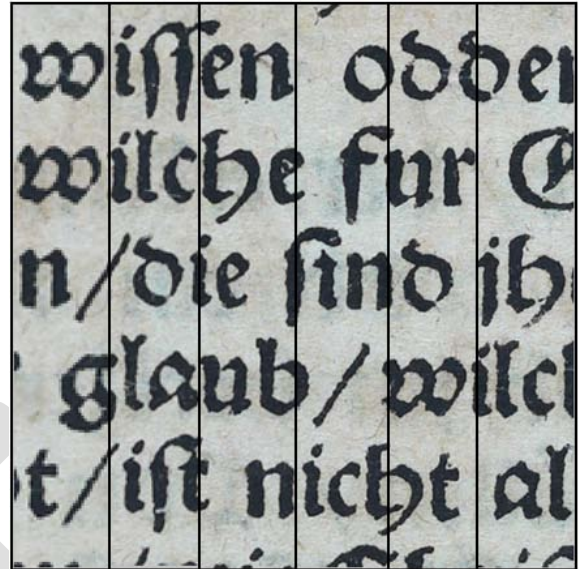 wiſſen odder
wilche fur
n/die ſind jh
glaub/wilch
t/iſt nicht al